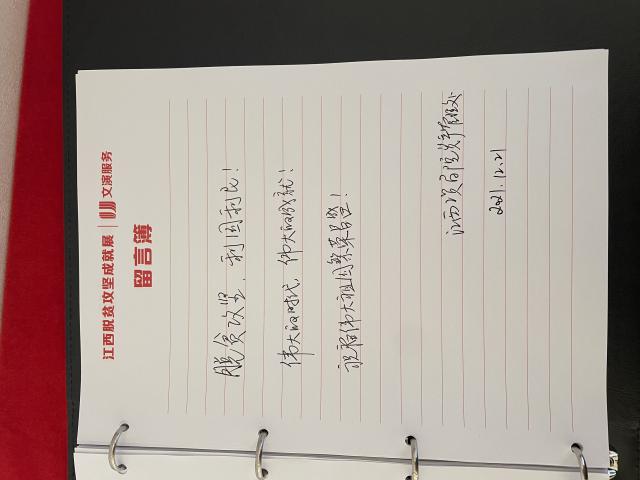 江西脱贫攻坚成就展 文演服务
留言簿
脱贫攻坚,利国利民!
伟大的时代,伟大的成就!
祝福伟大祖国繁荣昌盛!
江西
2021.12.21